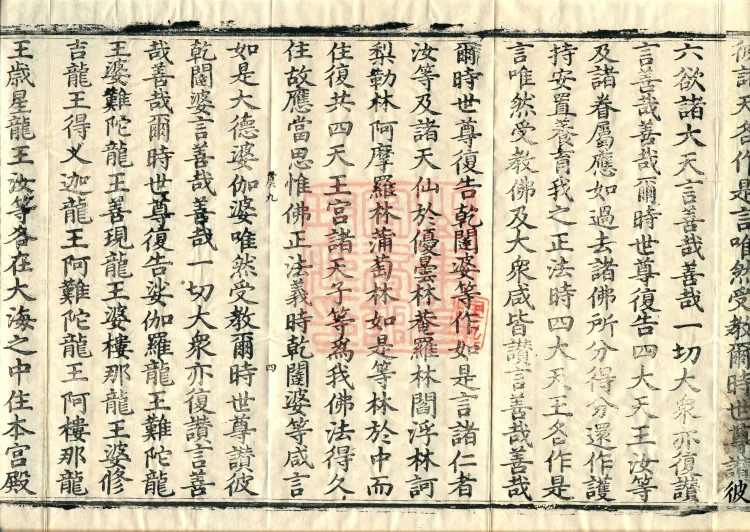 彼諸天各作是言唯然受教爾時世尊讚彼
六欲諸大天言善哉善哉一切大衆亦復讚
言善哉善哉爾時世尊復告四大天王汝等
及諸眷屬應如過去諸佛所分得分還作護
持安置養育我之正法時四大天王各作是
言唯然受教佛及大衆咸皆讚言善哉善哉
爾時世尊復告乾闥婆等作如是言諸仁者
汝等及諸天仙於優曇林菴羅林閻浮林訶
梨勒林阿摩羅林蒲萄林如是等林於中而
住復共四天王宮諸天子等爲我佛法得久
住故應當思惟佛正法義時乾闥婆等咸言
四
如是大德婆伽婆唯然受教爾時世尊讚彼
乾闥婆言善哉善哉一切大衆亦復讚言善
哉善哉爾時世尊復告娑伽羅龍王難陀龍
王婆難陀龍王善現龍王婆樓那龍王婆修
吉龍王得叉迦龍王阿難陀龍王阿樓那龍
王歳星龍王汝等各在大海之中住本宮殿